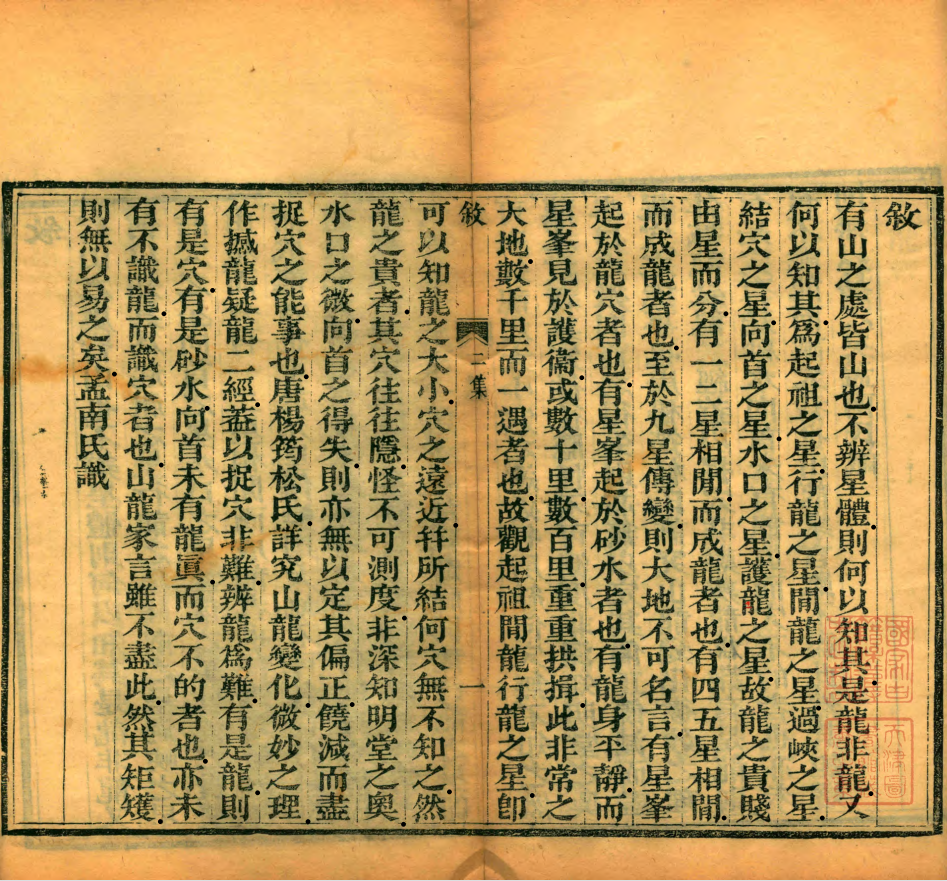 敘
有山之處皆山也不辨星體則何以知其是龍非龍又
何以知其爲起祖之星行龍之星閒龍之星過峽之星
結穴之星向首之星水口之星護龍之星故龍之貴賤
由星而分有一二星相閒而成龍者也有四五星相閒
而成龍者也至於九星傳變則大地不可名言有星峯
起於龍穴者也有星峯起於砂水者也有龍身平靜而
星峯見於護衞或數十里數百里重重拱揖此非常之
大地數千里而一遇者也故觀起祖閒龍行龍之星卽
敘
二集
一
可以知龍之大小穴之遠近幷所結何穴無不知之然
龍之貴者其穴往往隱怪不可測度非深知明堂之奧
水口之微向首之得失則亦無以定其偏正饒減而盡
捉穴之能事也唐楊筠松氏詳究山龍變化微妙之理
作撼龍疑龍二經葢以捉穴非難辨龍爲難有是龍則
有是穴有是砂水向首未有龍眞而穴不的者也亦未
有不識龍而識穴者也山龍家言雖不盡此然其矩矱
則無以易之矣孟南氏識